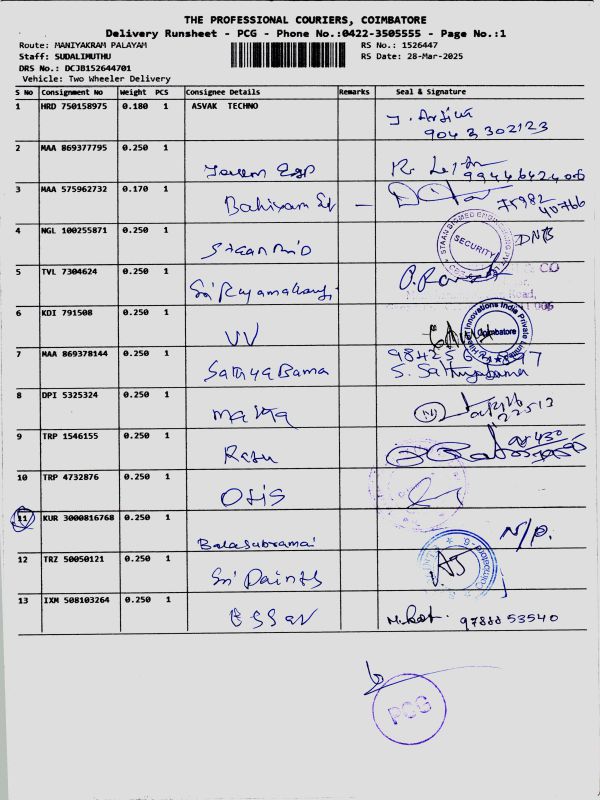 THE PROFESSIONAL COURIERS, COIMBATORE
Delivery Runsheet - PCG - Phone No.:0422-3505555 - Page No.:1
Route: MANIYAKRAM PALAYAM
RS No.: 1526447
Staff: SUDALIMUTHU
RS Date: 28-Mar-2025
DRS No.: DCJB152644701
Vehicle: Two Wheeler Delivery
S No Consignment No Weight PCS Consignee Details Remarks Seal & Signature
1 HRD 750158975 0.180 1 ASVAK TECHNO
9043302123
2 MAA 869377795 0.250 1
3 MAA 575962732 0.170 1
75982
40766
4 NGL 100255871 0.250 1
SECURITY
DNB
5 TVL 7304624 0.250 1
& CO
Road,
6 KDI 791508 0.250 1 VV
Innovations India Private Limited
Coimbatore
7 MAA 869378144 0.250 1 SathyaBama
S. Sathyabama
8 DPI 5325324 0.250 1
22513
9 TRP 1546155 0.250 1
10 TRP 4732876 0.250 1 Otis
11 KUR 3000816768 0.250 1 Balasubramai N/P.
12 TRZ 50050121 0.250 1 Sri Paints
13 IXM 508103264 0.250 1 Essar
53540
PCG